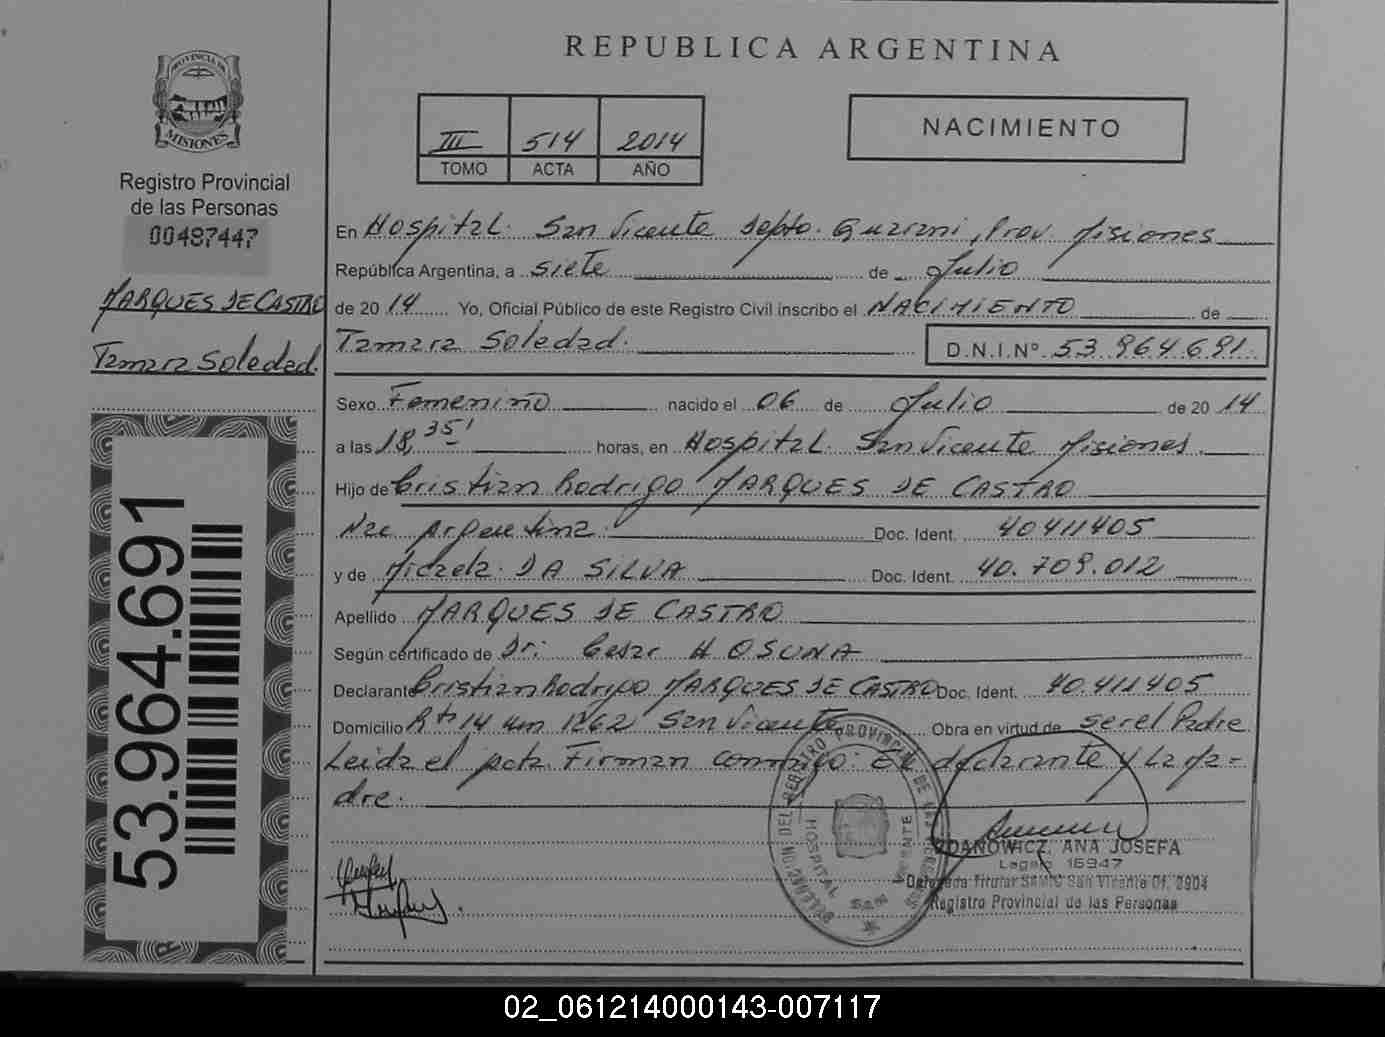 REPUBLICA ARGENTINA
PROVINCIA DE
MISIONES
Registro Provincial
de las Personas
00487447
MARQUES DE CASTRO
Tamara Soledad.
53.964.691
III 514 2014
TOMO ACTA AÑO
NACIMIENTO
En Hospital. San Vicente Depto. Guarani, Prov. Misiones
República Argentina, a siete de Julio
de 2014 Yo, Oficial Público de este Registro Civil inscribo el NACIMIENTO de
Tamara Soledad. D.N.I.Nº 53.964.691.
Sexo Femenino nacido el 06 de Julio de 2014
a las 18,35' horas, en Hospital. San Vicente Misiones.
Hijo de Cristian Rodrigo MARQUES DE CASTRO
Nac Argentina. Doc. Ident. 40411405
y de Micaela. DA SILVA Doc. Ident. 40.709.012
Apellido MARQUES DE CASTRO
Según certificado de Dr: Cesar H OSUNA
Declarante Cristian Rodrigo MARQUES DE CASTRO Doc. Ident. 40.411405
Domicilio Rta 14 km 1262 San Vicente Obra en virtud de ser el Padre
Leida el acta. Firman conmigo: El declarante y La Ma-
dre.
DELEGACION DEL REGISTRO PROVINCIAL DE LAS PERSONAS
HOSPITAL VICENTE
ZDANOWICZ, ANA JOSEFA
Legajo 15947
Delegada Titular SAMIC San Vicente Of. 2904
Registro Provincial de las Personas
02_061214000143-007117